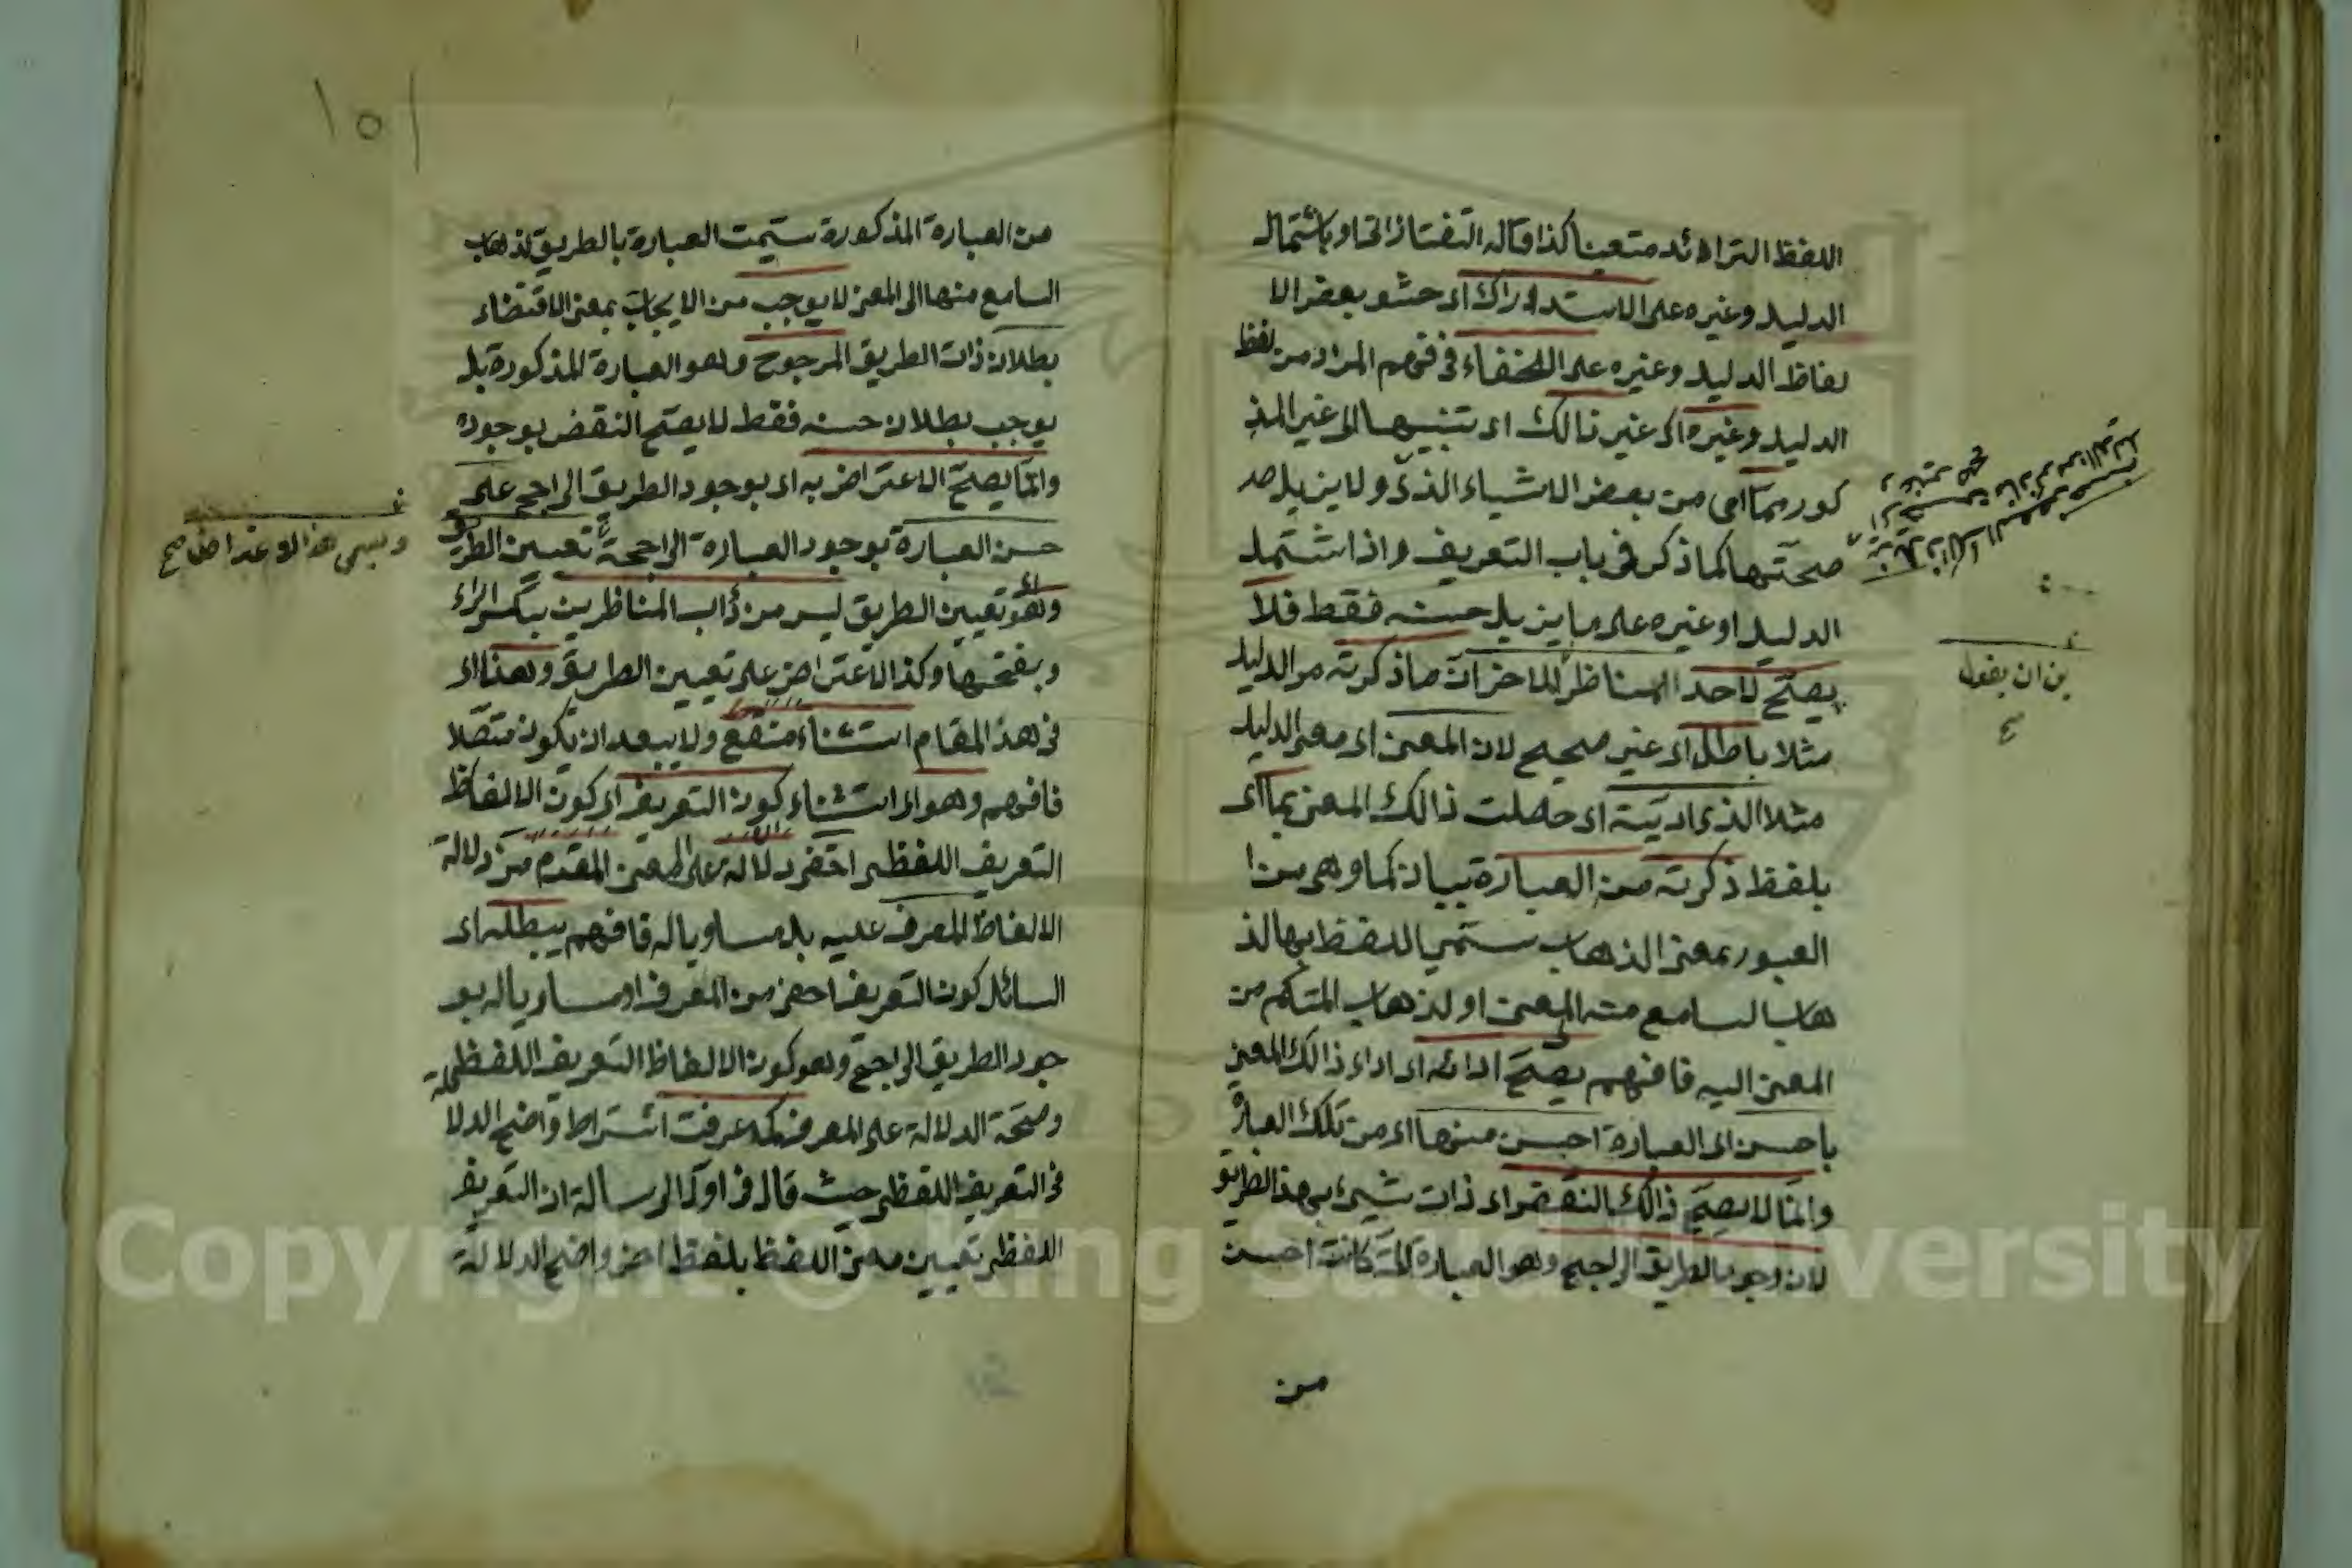 اللفظ الزائد متعينا كذا قاله التفتازانى او باشتمال
الدليل وغيره على الاستدراك اى حشو بعض الا
لفاظ الدليل وغيره على الخفاء فى فهم المراد من لفظ
الدليل وغيره اى غير ذالك اى تنبيها الى غير المذ
كور مما اى من بعض الاشياء الذى ولا يزيل صـ
صحتها كما ذكر فى باب التعريف واذا اشتمل
الدليل او غيره على ما يزيل حسنه فقط فلا
يصح لاحد المناظر الاخر ان ما ذكرته من الدليل
مثلا باطل اى غير صحيح لان المعنى اى معنى الدليل
مثلا الذى اديته اى حصلت ذالك المعنى بما اى
بلفظ ذكرته من العبارة بيان لما وهى من
العبور بمعنى الذهاب سمى اللفظ بها لذ
هاب السامع منه الى المعنى او لذهاب المتكلم من
المعنى اليه فافهم يصح ادائه اى اداء ذالك المعنى
باحسن اى العبارة احسن منها اى من تلك العبارة
وانما لا يصح ذالك النقض اى ذات شيئ بهذا الطريق
لان وجود الطريق الراجح وهو العبارة التى كانت احسن
من
ين ان يقول
١٥١
من العبارة المذكورة سميت العبارة بالطريق لذهاب
السامع منها الى المعنى لا يوجب من الايجاب بمعنى الاقتضاء
بطلان ذات الطريق المرجوح وهو العبارة المذكورة بل
يوجب بطلان حسنه فقط لا يصح النقض بوجوده
وانما يصح الاعتراض به اى بوجود الطريق الراجح على
حسن العبارة بوجود العبارة الراجحة تعيين الطريق
وهو تعيين الطريق ليس من دأب المناظرين بكسر الراء
وبفتحها وكذا الاعتراض على تعيين الطريق وهذا اى
فى هذا المقام استثناء منقطع ولا يبعد ان يكون متصلا
فافهم وهو اى استثناء كون التعريف اى كون الالفاظ
التعريف اللفظى اخفى دلالة على المعنى المقدم من دلالة
الالفاظ المعرف عليه بل مساويا له فافهم يبطله اى
السائل كون التعريف اخفى من المعرف او مساويا له بو
جود الطريق الراجح وهو كون الالفاظ التعريف اللفظى
وصحة الدلالة على المعرف لما عرفت اشتراط واضح الدلا
فى التعريف اللفظى حيث قال فى اول الرسالة ان التعريف
اللفظى تعيين معنى اللفظ بلفظ اخر واضح الدلالة
ويسمى هذا
Copyright © King Saud University